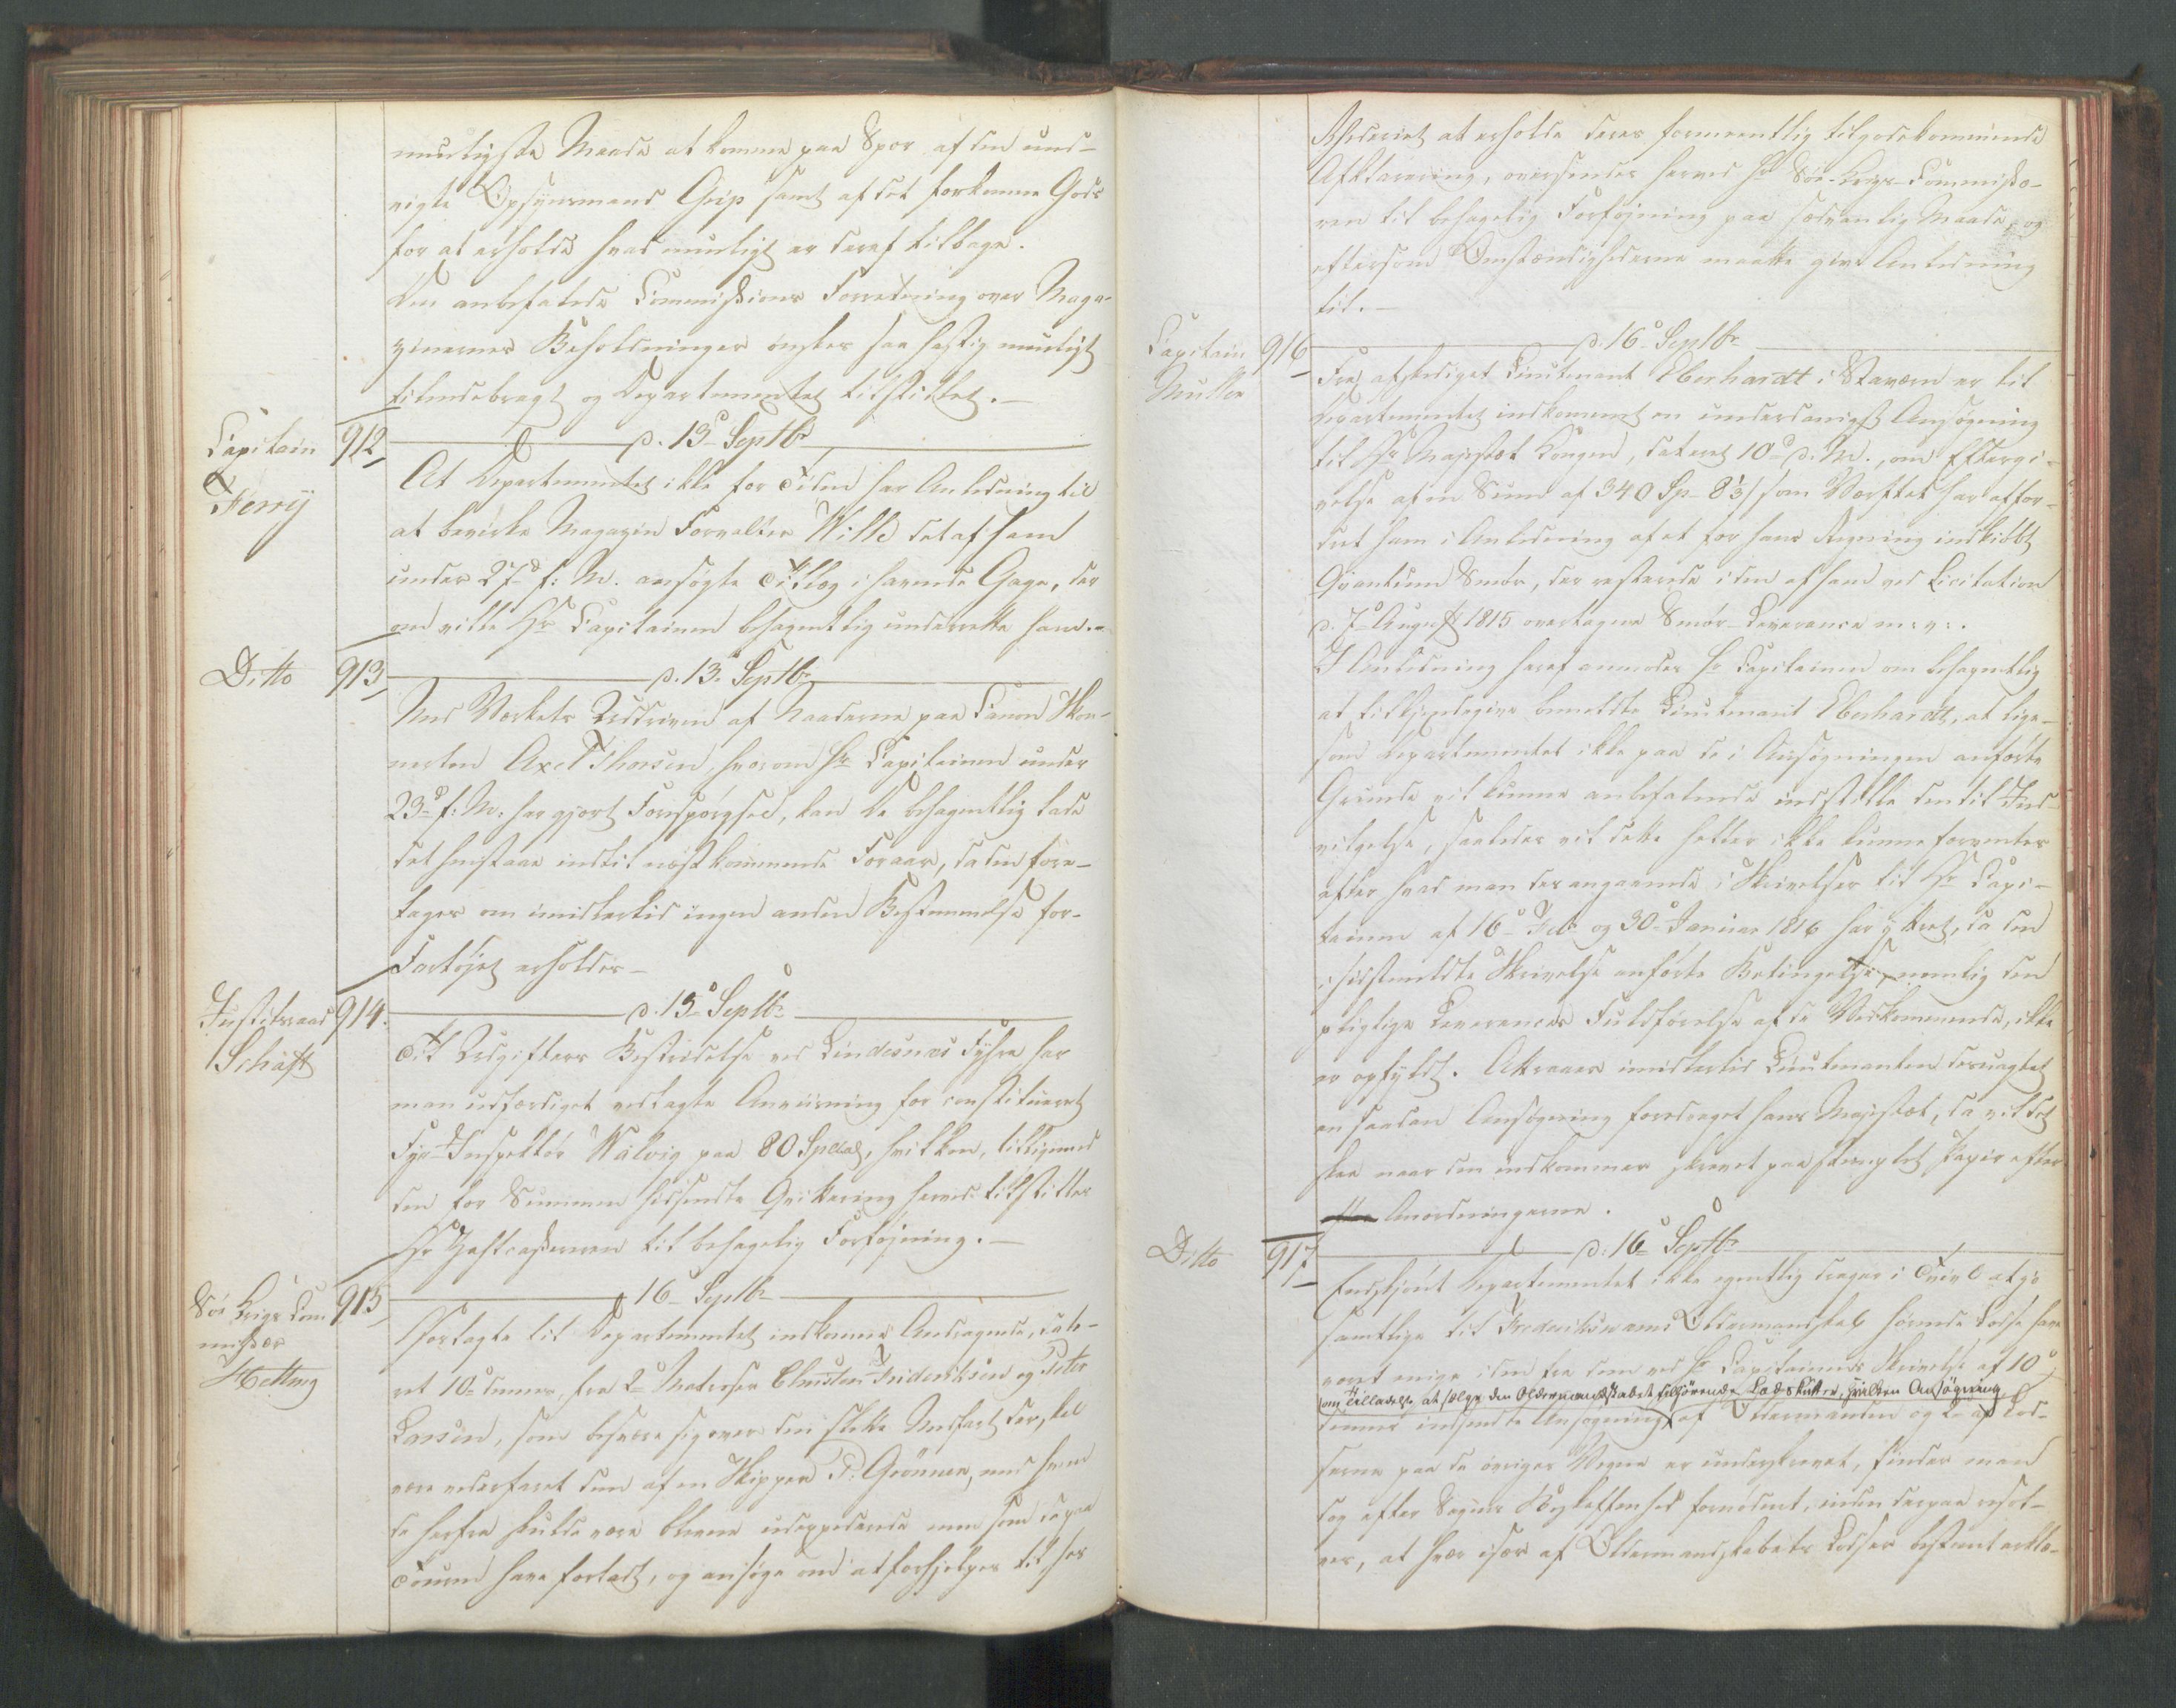 mueligste Maade at komme paa Spor af den und-
vigte Opsynsmand Grip samt af det forkomne Gods
for at erholde hvad mueligt er deraf tilbage.
Den anbefalede Commissions Forretning over Maga-
zinernes Beholdninger ønskes saa hastig mueligt
tilendebragt og Departementet tilstillet.-
Capitain
Ferry
912 d. 13 Septbr
At Departementet ikke for Tiden har Anledning til
at bevirke Magazin Forvalter Wille det af ham
under 27de f: M. ansøgte Tillæg i havende Gage, der
om ville Hr Capitainen behagentlig underrette ham.-
Ditto 913 d. 13 Septbr
Med Værkets Uddriven af Naaderne paa Canon Skon-
nerten Axel Thorsen, hvorom Hr Capitainen under
23de f: M. har gjort Forespørgsel, kan De behagentlig lade
det henstaae indtil næstkommende Foraar, da den fore-
tages om imidlertid ingen anden Bestemmelse for
Fartøjet erholdes-
Justitsraad
Schäft
914. d. 13 Septbr
Til Udgifters Bestridelse ved Lindesnæs Fyhr har
man udfærdiget vedlagte Anviisning for constitueret
Fyr-Inspektør Walvig paa 80 Spd, hvilken, tilligemed
den for Summen hidsendte Qvittering herved tilstilles
Hr Zahlcasserer til behagelig Forføjning.-
Søe Krigs Com
missær
Hettwig
915 16 Septbr
Hoslagte til Departementet indkomne Andragende, date-
ret 10de dennes, fra 2de Matroser Christen Frideriksen og Peter
Larsen, som besvære sig over den slette Medfart der skal
være vederfaret dem af en Skipper P. Grønner, med hvem
de herfra skulde være blevne udexpederede men som de paa
Touren have forladt, og ansøge om at forhjelpes til hos
Rhederiet at erholde deres formeentlig tilgodekommende
Afklarering, oversendes herved Hr Søe-Krigs-Commissæ-
ren til behagelig Forføjning paa sædvanlig Maade, og
eftersom Omstændighederne maatte give Anledning
til.-
Capitain
Muller
916 d. 16 Septbr
Fra afskediget Lieutenant Eberhardt i Stavern er til
Departementet indkommet en underdanigst Ansøgning
til Hs Majestæt Kongen, dateret 10de d. M., om Eftergi-
velse af en Sum af 340 Sp 83/ som Værftet har affor-
dret ham i Anledning af et for hans Regning indkiøbt
Qvantum Smør, der resterede i den af ham ved Licitation
d. 7 August 1815 overtagne Smør-Leverance m: v:.
I Anledning heraf anmodes Hr Capitainen om behagentlig
at tilkjendegive bemeldte Lieutenant Eberhardt, at lige-
som Departementet ikke paa de i Ansøgningen anførte
Grunde vil kunne anbefalende indstille den til Ind-
vilgelse, saaledes vil dette heller ikke kunne forventes
efter hvad man desangaaende i Skrivelser til Hr Capi-
tainen af 16 Febr og 30 Januar 1816 har yttret, da den
i sidstmeldte Skrivelse anførte Betingelse, nemlig den
pligtige Leverances Fuldførelse af de Vedkommende, ikke
er opfyldt. Attraaer imidlertid Lieutenanten desuagtet
en saadan Ansøgning foredraget Hans Majestæt, da vil det
skee naar den indkommer skrevet paa stemplet Papir efter
Anordningerne.
Ditto 917 d: 16 Septbr
Endskjønt Departementet ikke egentlig drager i Tvivl at jo
samtlige til Frederiksværns Oldermandskab hørende Lodse have
været enige i den fra dem ved Hr Capitainens Skrivelse af 10
om Tilladelse at sælge den Oldermandskabet tilhørende Lodskutter, hvilken Ansøgning
dennes indsendte Ansøgning af Oldermanden og 2 af Lod-
serne paa de øvriges Vegne er underskrevet, finder man
dog efter Sagens Beskaffenhed fornødent, inden derpaa resol-
veres, at hver især af Oldermandskabets Lodser bestemt erklæ-